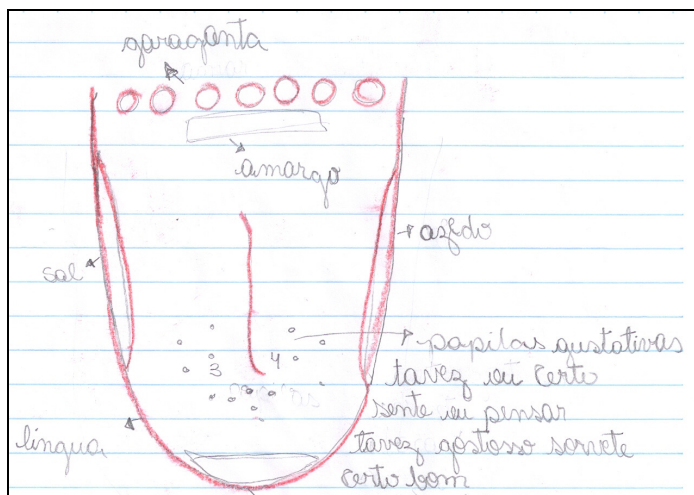 garaganta
amargo
azedo
sal
3 4
papilas gustativas
tavez eu certo
sente eu pensar
língua
tavez gostosso sorvete
certo bom